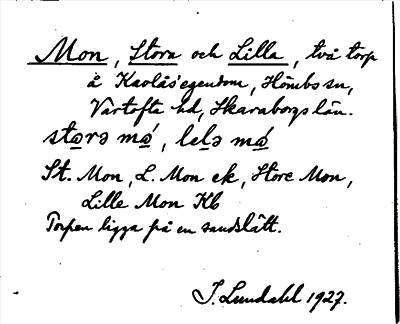 Mon, Stora och Lilla, två torp
å Kavlås' egendom, Hömbs sn,
Vartofta hd, Skaraborgs län.
storə mó, lelə mó
St. Mon, L. Mon ek, Store Mon,
Lille Mon Kb
Torpen ligga på en sandslätt.
I. Lundahl 1927.